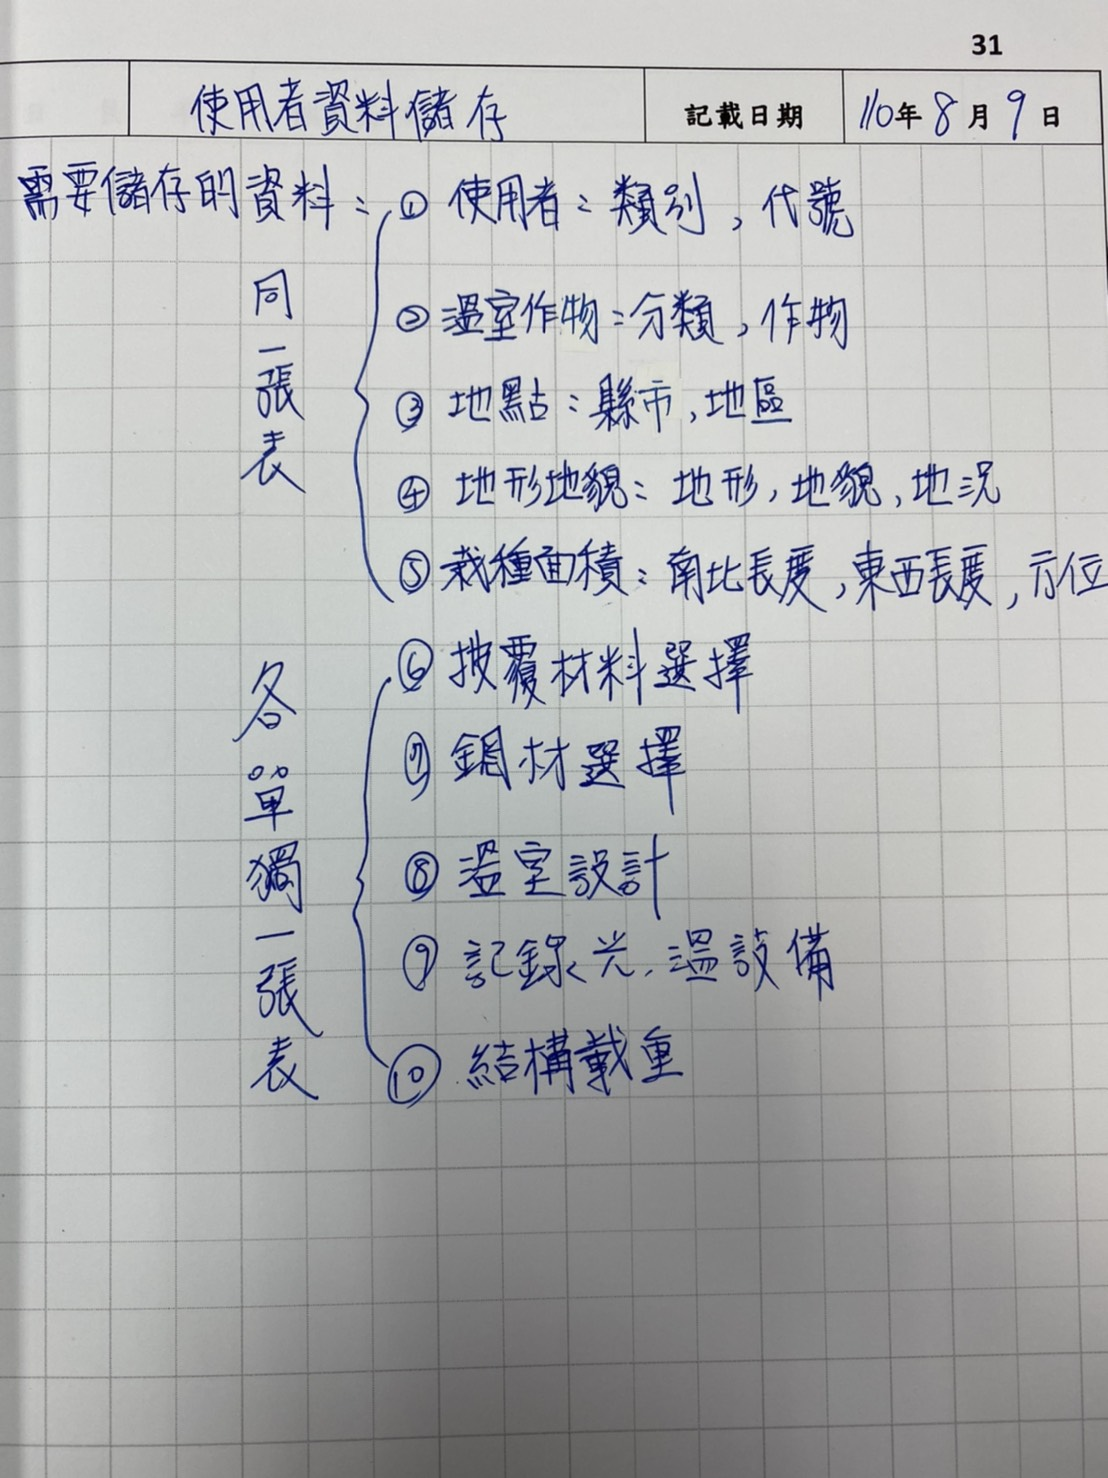 31
使用者資料儲存 記載日期 110年8月9日
需要儲存的資料：① 使用者：類別，代號
② 溫室作物：分類，作物
③ 地點：縣市，地區
④ 地形地貌：地形，地貌，地況
⑤ 栽種面積：南北長度，東西長度，方位
同一張表
⑥ 披覆材料選擇
⑦ 鋼材選擇
⑧ 溫室設計
⑨ 記錄光、溫設備
⑩ 結構載重
各單獨一張表